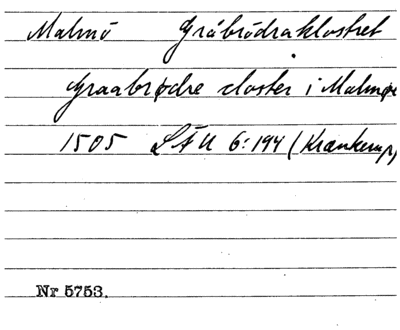 Malmö Gråbrödraklostret
Graabrødre closter i Malmøe
1505 LFU 6:194 (Krankemp)
Nr 5753.